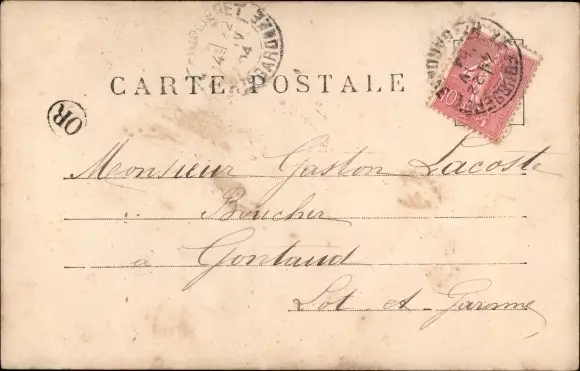 CARTE POSTALE
OR
10
Monsieur Gaston Lacoste
Boucher
a Gontaud
Lot et Garonne